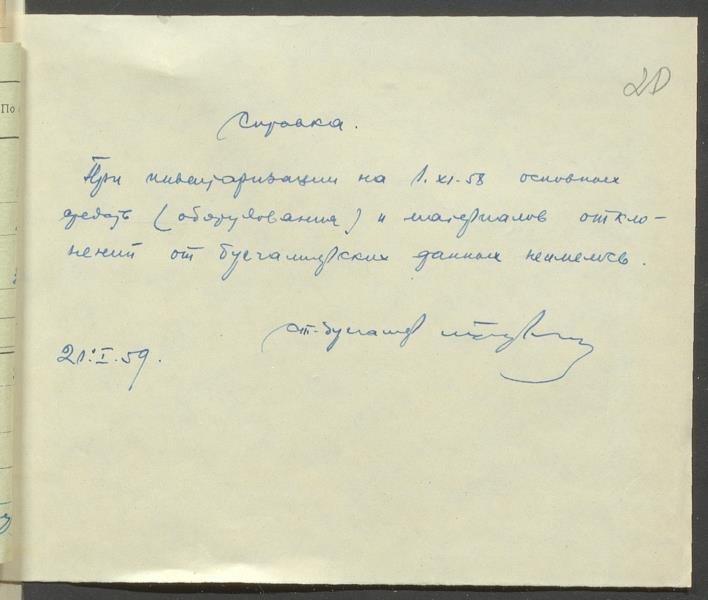 20
По
Справка.
При инвентаризации на 1.XI.58 основных
средств (оборудования) и материалов откло-
нений от бухгалтерских данных неимелось.
ст. бухгалтер
21.I.59.